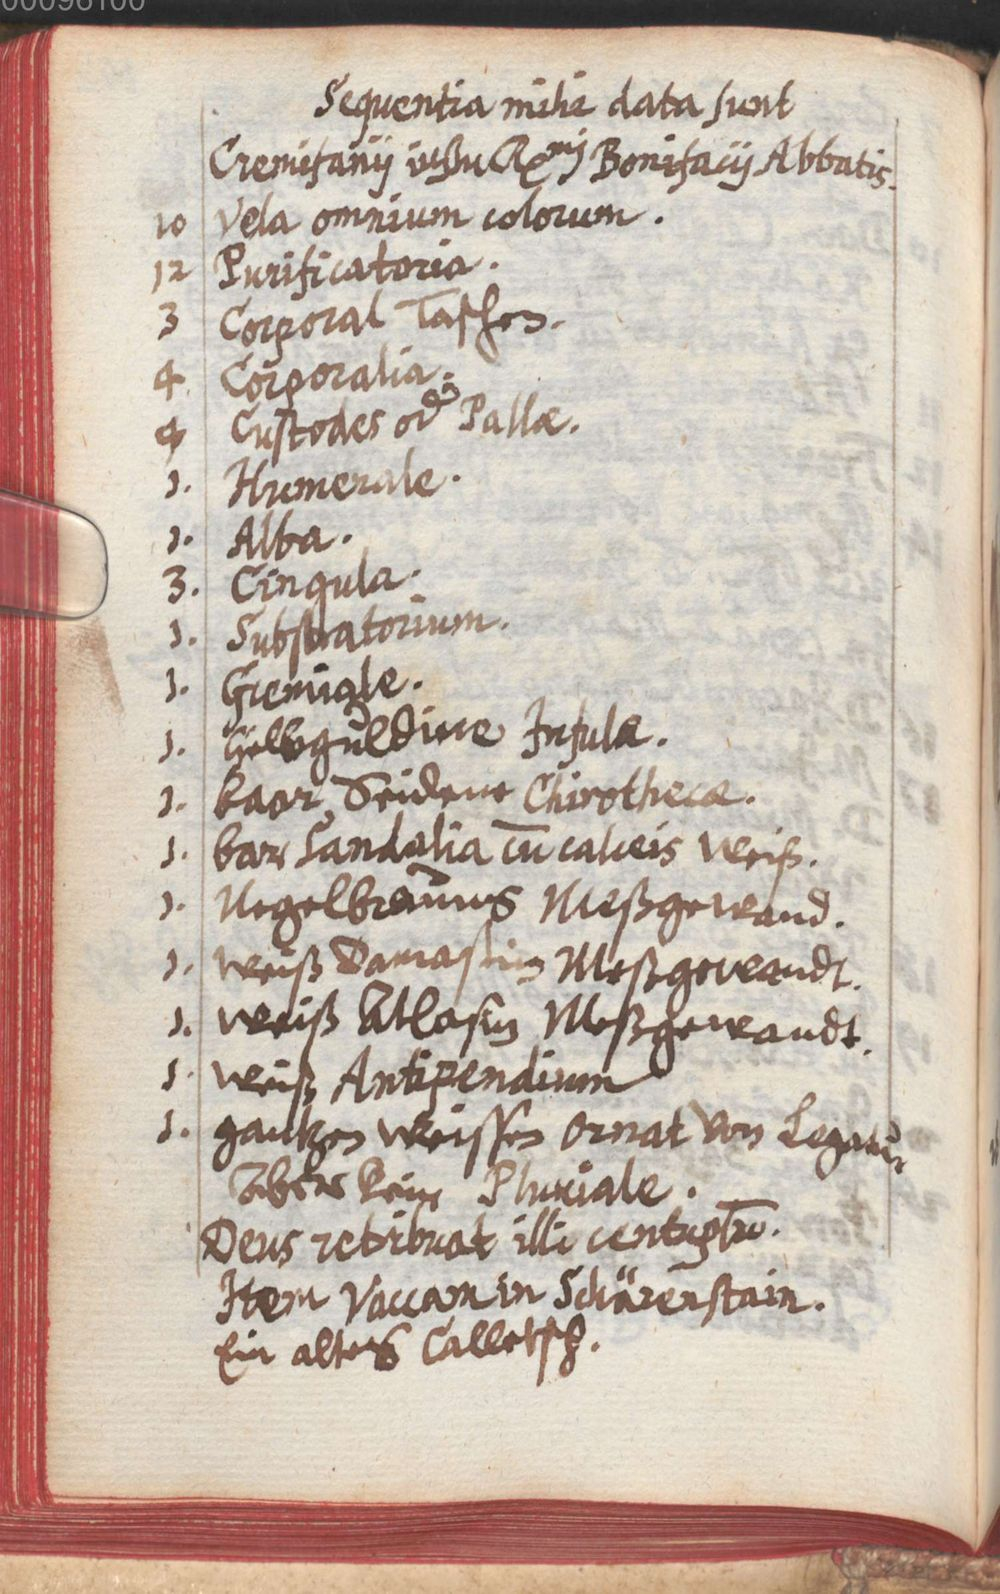 00096100
Sequentia mihi data sunt
Cremifanij iussu Rmj Bonifacij Abbatis.
10 Vela omnium colorum.
12 Purificatoria.
3 Corporal Taschen.
4 Corporalia.
4 Custodes od Pallæ.
1. Humerale.
1. Alba.
3. Cingula.
1. Substratorium.
1. Gremiale.
1. Gelbguldine Infula.
1. baar Seidene Chirothecæ.
1. bar Sandalia cū calceis Weiß.
1. Negelbrauns Meßgewand.
1. weiß Damastin Meßgewandt.
1. weiß Atlasin Meßgewandt.
1. weiß Antipendium
1. gantzen Weissen Ornat von Legatur
Aber kein Pluviale.
Deus retribuat illi centuplū.
Item Vaccam in Schärenstain.
Ein altes Calletsch.